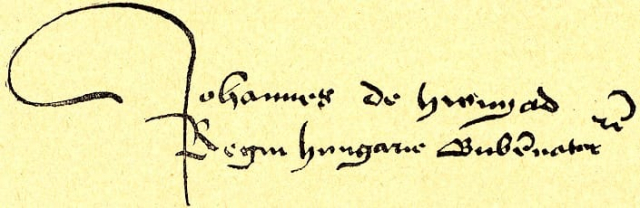 Johannes de Hwnyad
Regni hungarie Gubernator